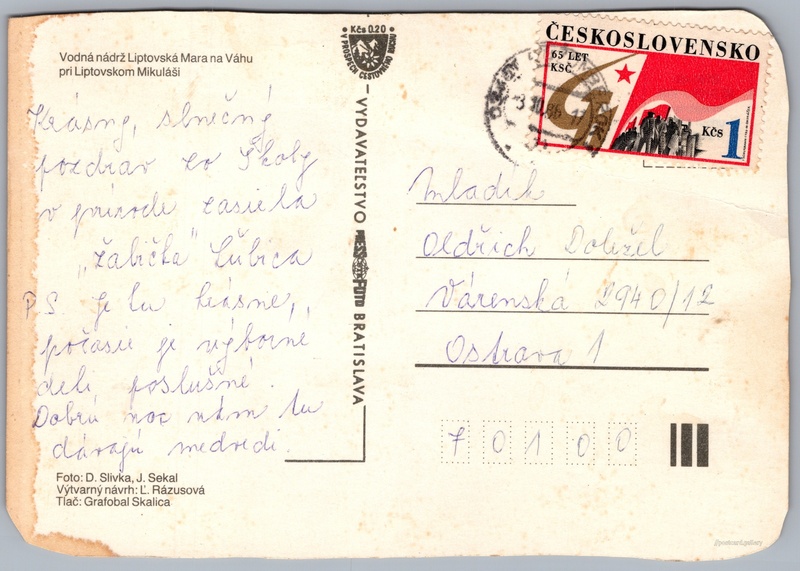 Vodná nádrž Liptovská Mara na Váhu
pri Liptovskom Mikuláši
Krásny, slnečný
pozdrav zo Školy
v prírode zasiela
„Žabička" Ľubica
P.S. Je tu krásne,
počasie je výborné
deti poslušné.
Dobrú noc nám tu
dávajú medvedi.
Foto: D. Slivka, J. Sekal
Výtvarný návrh: Ľ. Rázusová
Tlač: Grafobal Skalica
Kčs 0.20
V PROSPECH CESTOVNÉHO RUCHU
VYDAVATEĽSTVO PRESSFOTO BRATISLAVA
ČESKOSLOVENSKO
65 LET
KSČ
Kčs 1
3.10.86
Mladík
Oldřich Doležel
Várenská 2940/12
Ostrava 1
70100
@postcard.gallery